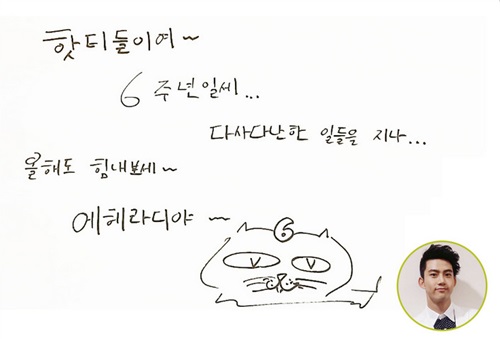 핫티들이여~
6주년일세...
다사다난한 일들을 지나...
올해도 힘내보세~
에헤라디야~
6